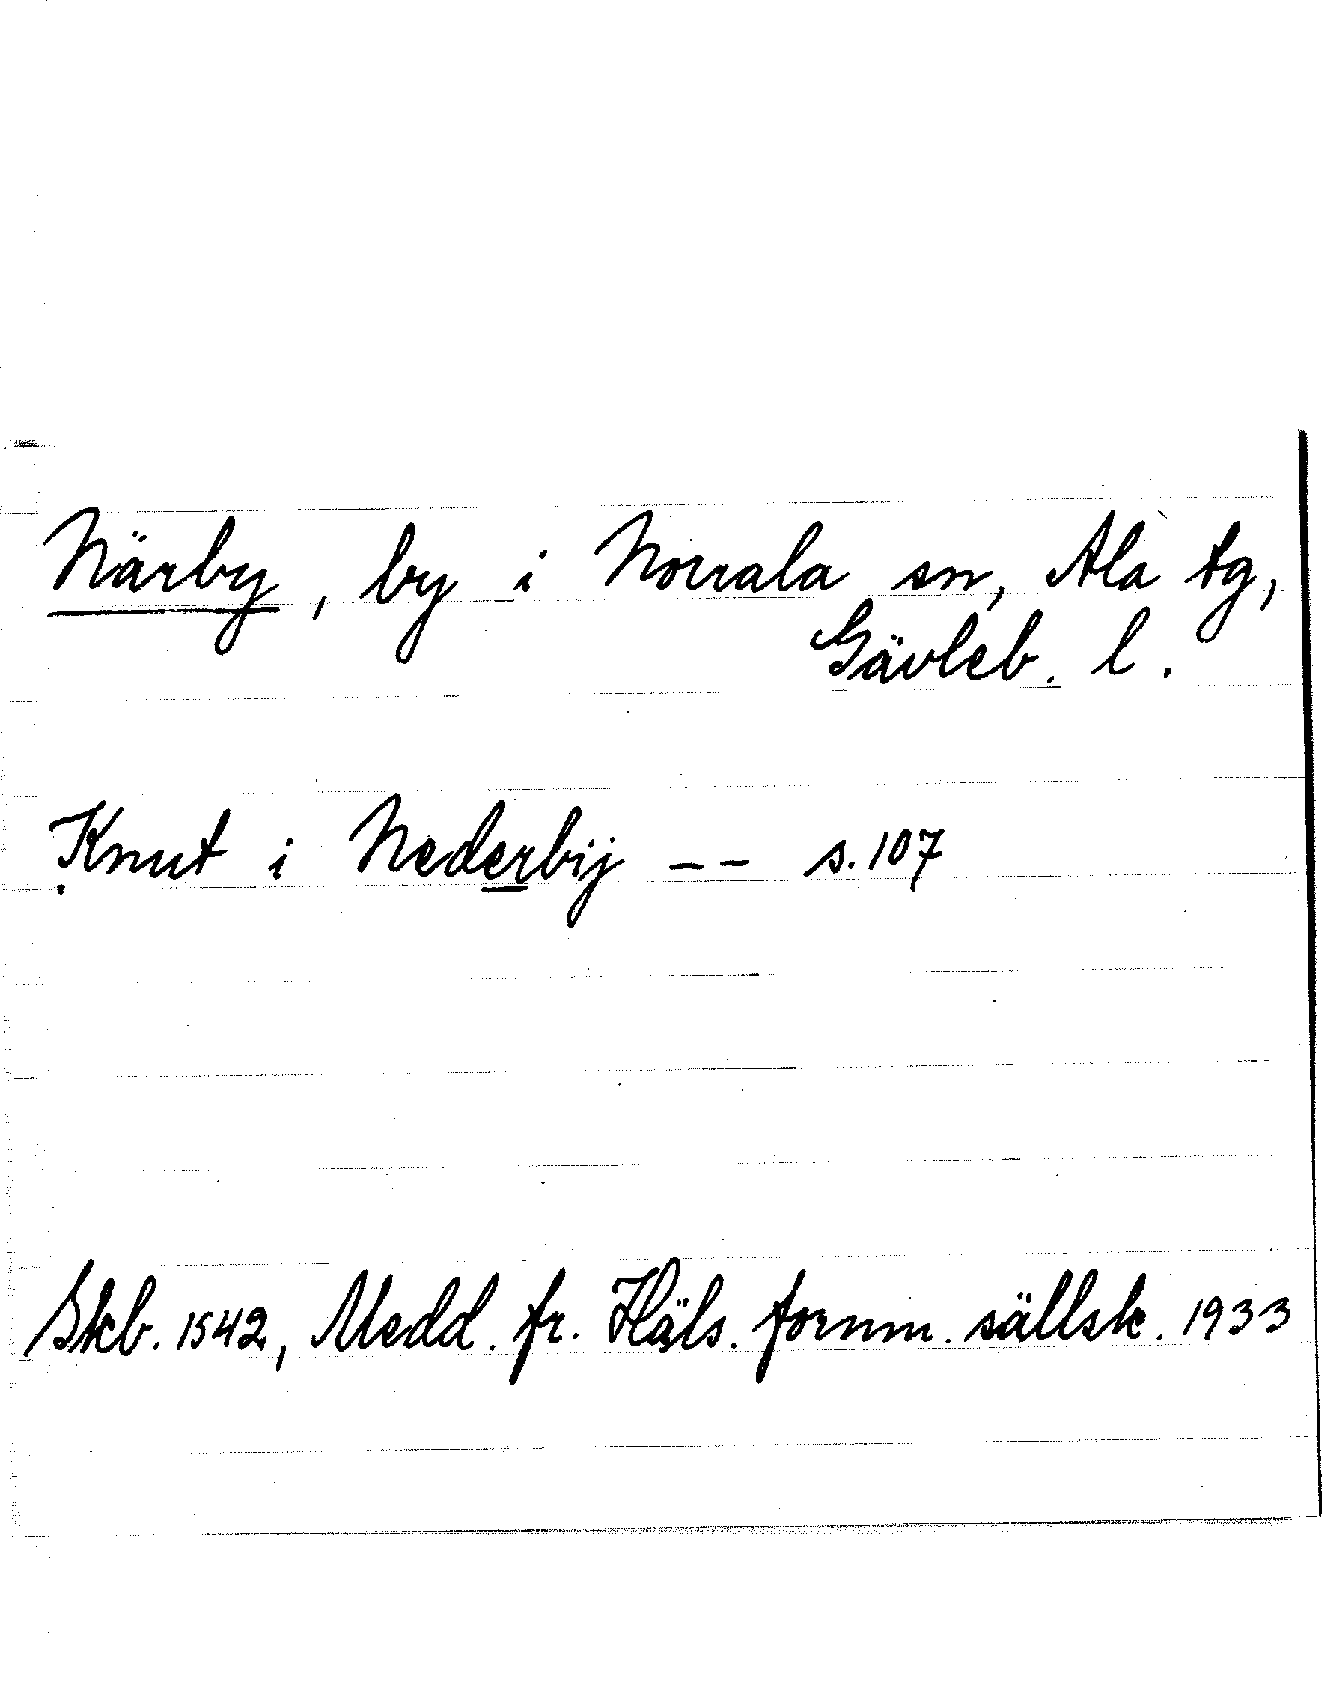 Närby, by i Norrala sn, Ala tg,
Gävleb. l.
Knut i Nederbij -- s. 107
Skb. 1542, Medd. fr. Häls. fornm. sällsk. 1933